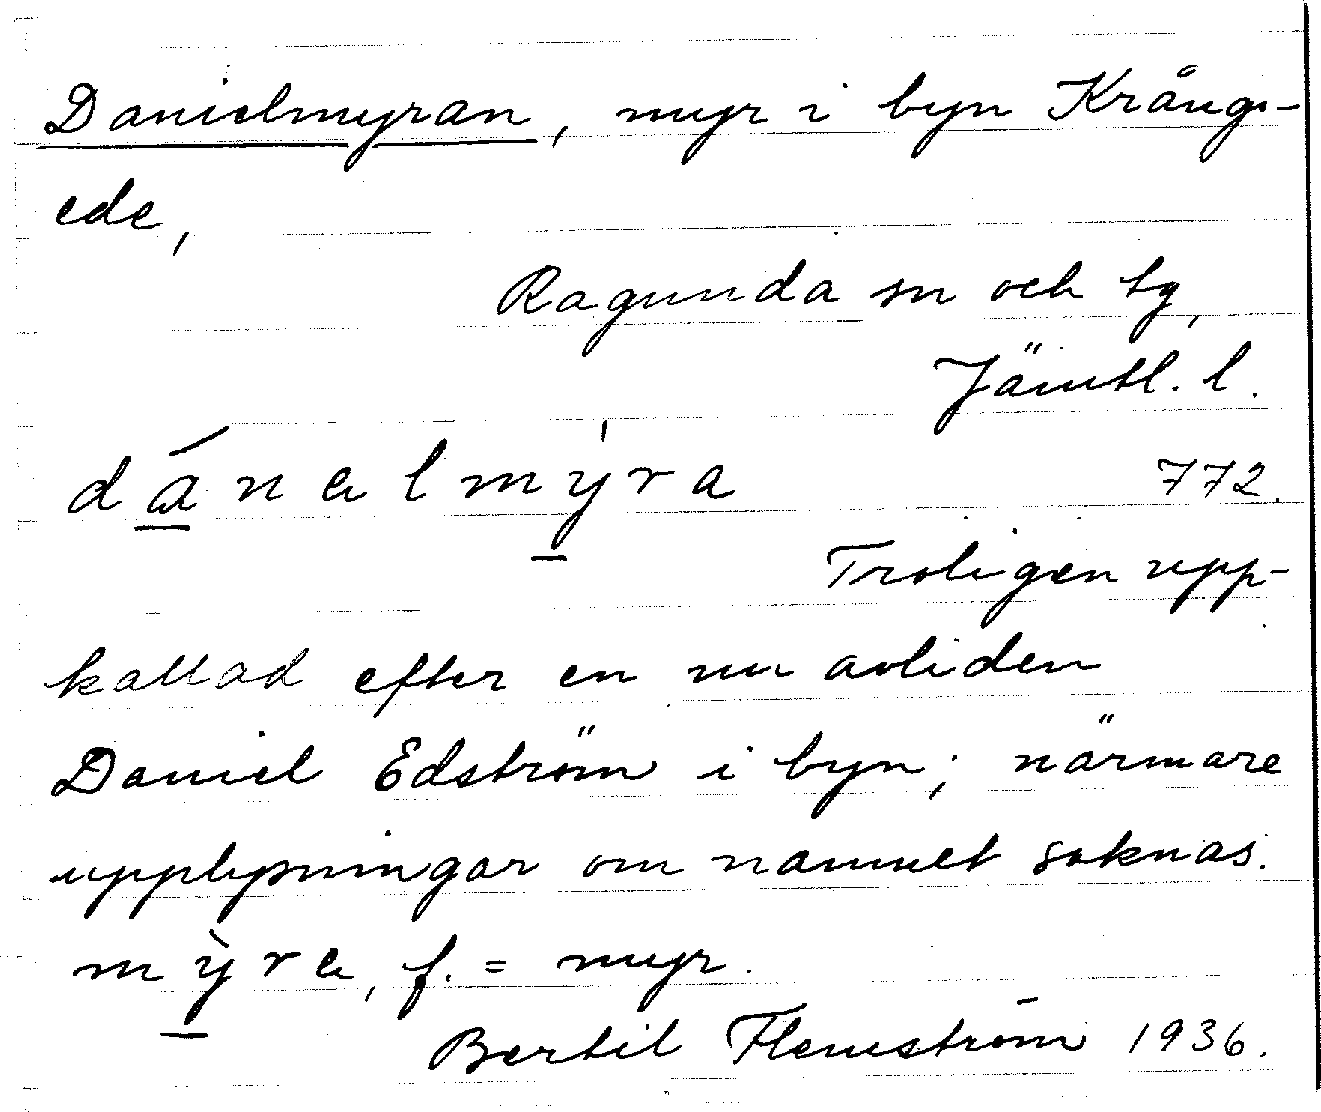 Danielmyran, myr i byn Krång-
ede,
Ragunda sn och tg,
Jämtl. l.
dánalmy̍ra 772.
Troligen upp-
kallad efter en nu avliden
Daniel Edström i byn; närmare
upplysningar om namnet saknas.
mỳra, f. = myr.
Bertil Flemström 1936.